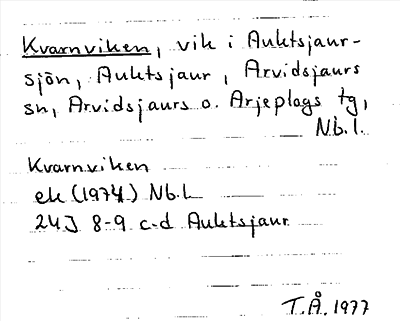 Kvarnviken, vik i Auktsjaur-
sjön, Auktsjaur, Arvidsjaurs
sn, Arvidsjaurs o. Arjeplogs tg,
Nb. l.
Kvarnviken
ek (1974) Nb. L
24J 8-9 c-d Auktsjaur
T.Å. 1977